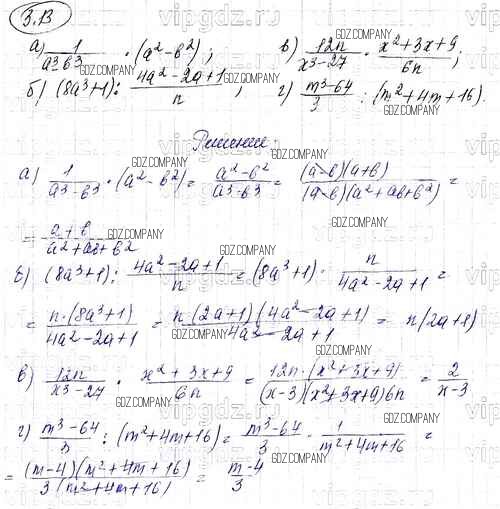 3.В
а) 1/(a³b³) · (a²-b²); в) 12n/(x³-27) · (x²+3x+9)/6n;
б) (8a³+1) : (4a²-2a+1)/n; г) (m³-64)/3 : (m²+4m+16).
Решение:
а) 1/(a³-b³) · (a²-b²) = (a²-b²)/(a³-b³) = (a-b)(a+b)/((a-b)(a²+ab+b²)) =
= (a+b)/(a²+ab+b²)
б) (8a³+1) : (4a²-2a+1)/n = (8a³+1) · n/(4a²-2a+1) =
= n·(8a³+1)/(4a²-2a+1) = n(2a+1)(4a²-2a+1)/(4a²-2a+1) = n(2a+1)
в) 12n/(x³-27) · (x²+3x+9)/6n = 12n·(x²+3x+9)/((x-3)(x²+3x+9)6n) = 2/(x-3)
г) (m³-64)/3 : (m²+4m+16) = (m³-64)/3 · 1/(m²+4m+16) =
= (m-4)(m²+4m+16)/(3(m²+4m+16)) = (m-4)/3
GDZ.COMPANY
vipgdz.ru